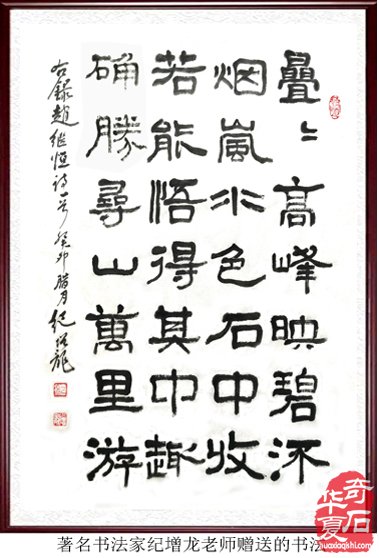 疊〻高峰映碧流
烟嵐水色石中收
若能悟得其中趣
确勝尋山萬里游
右錄趙继恒诗一首 癸卯腊月 纪增龍
华夏奇石
huaxiaqishi.com
著名书法家纪增龙老师赠送的书法